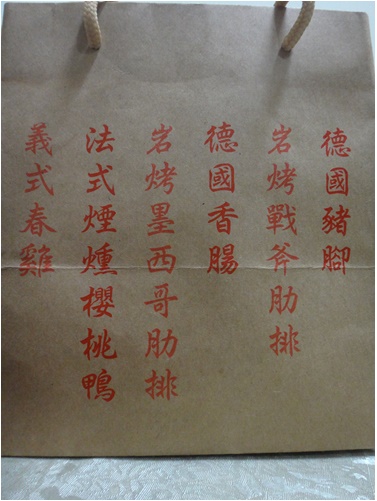 德國豬腳
岩烤戰斧肋排
德國香腸
岩烤墨西哥肋排
法式煙燻櫻桃鴨
義式春雞